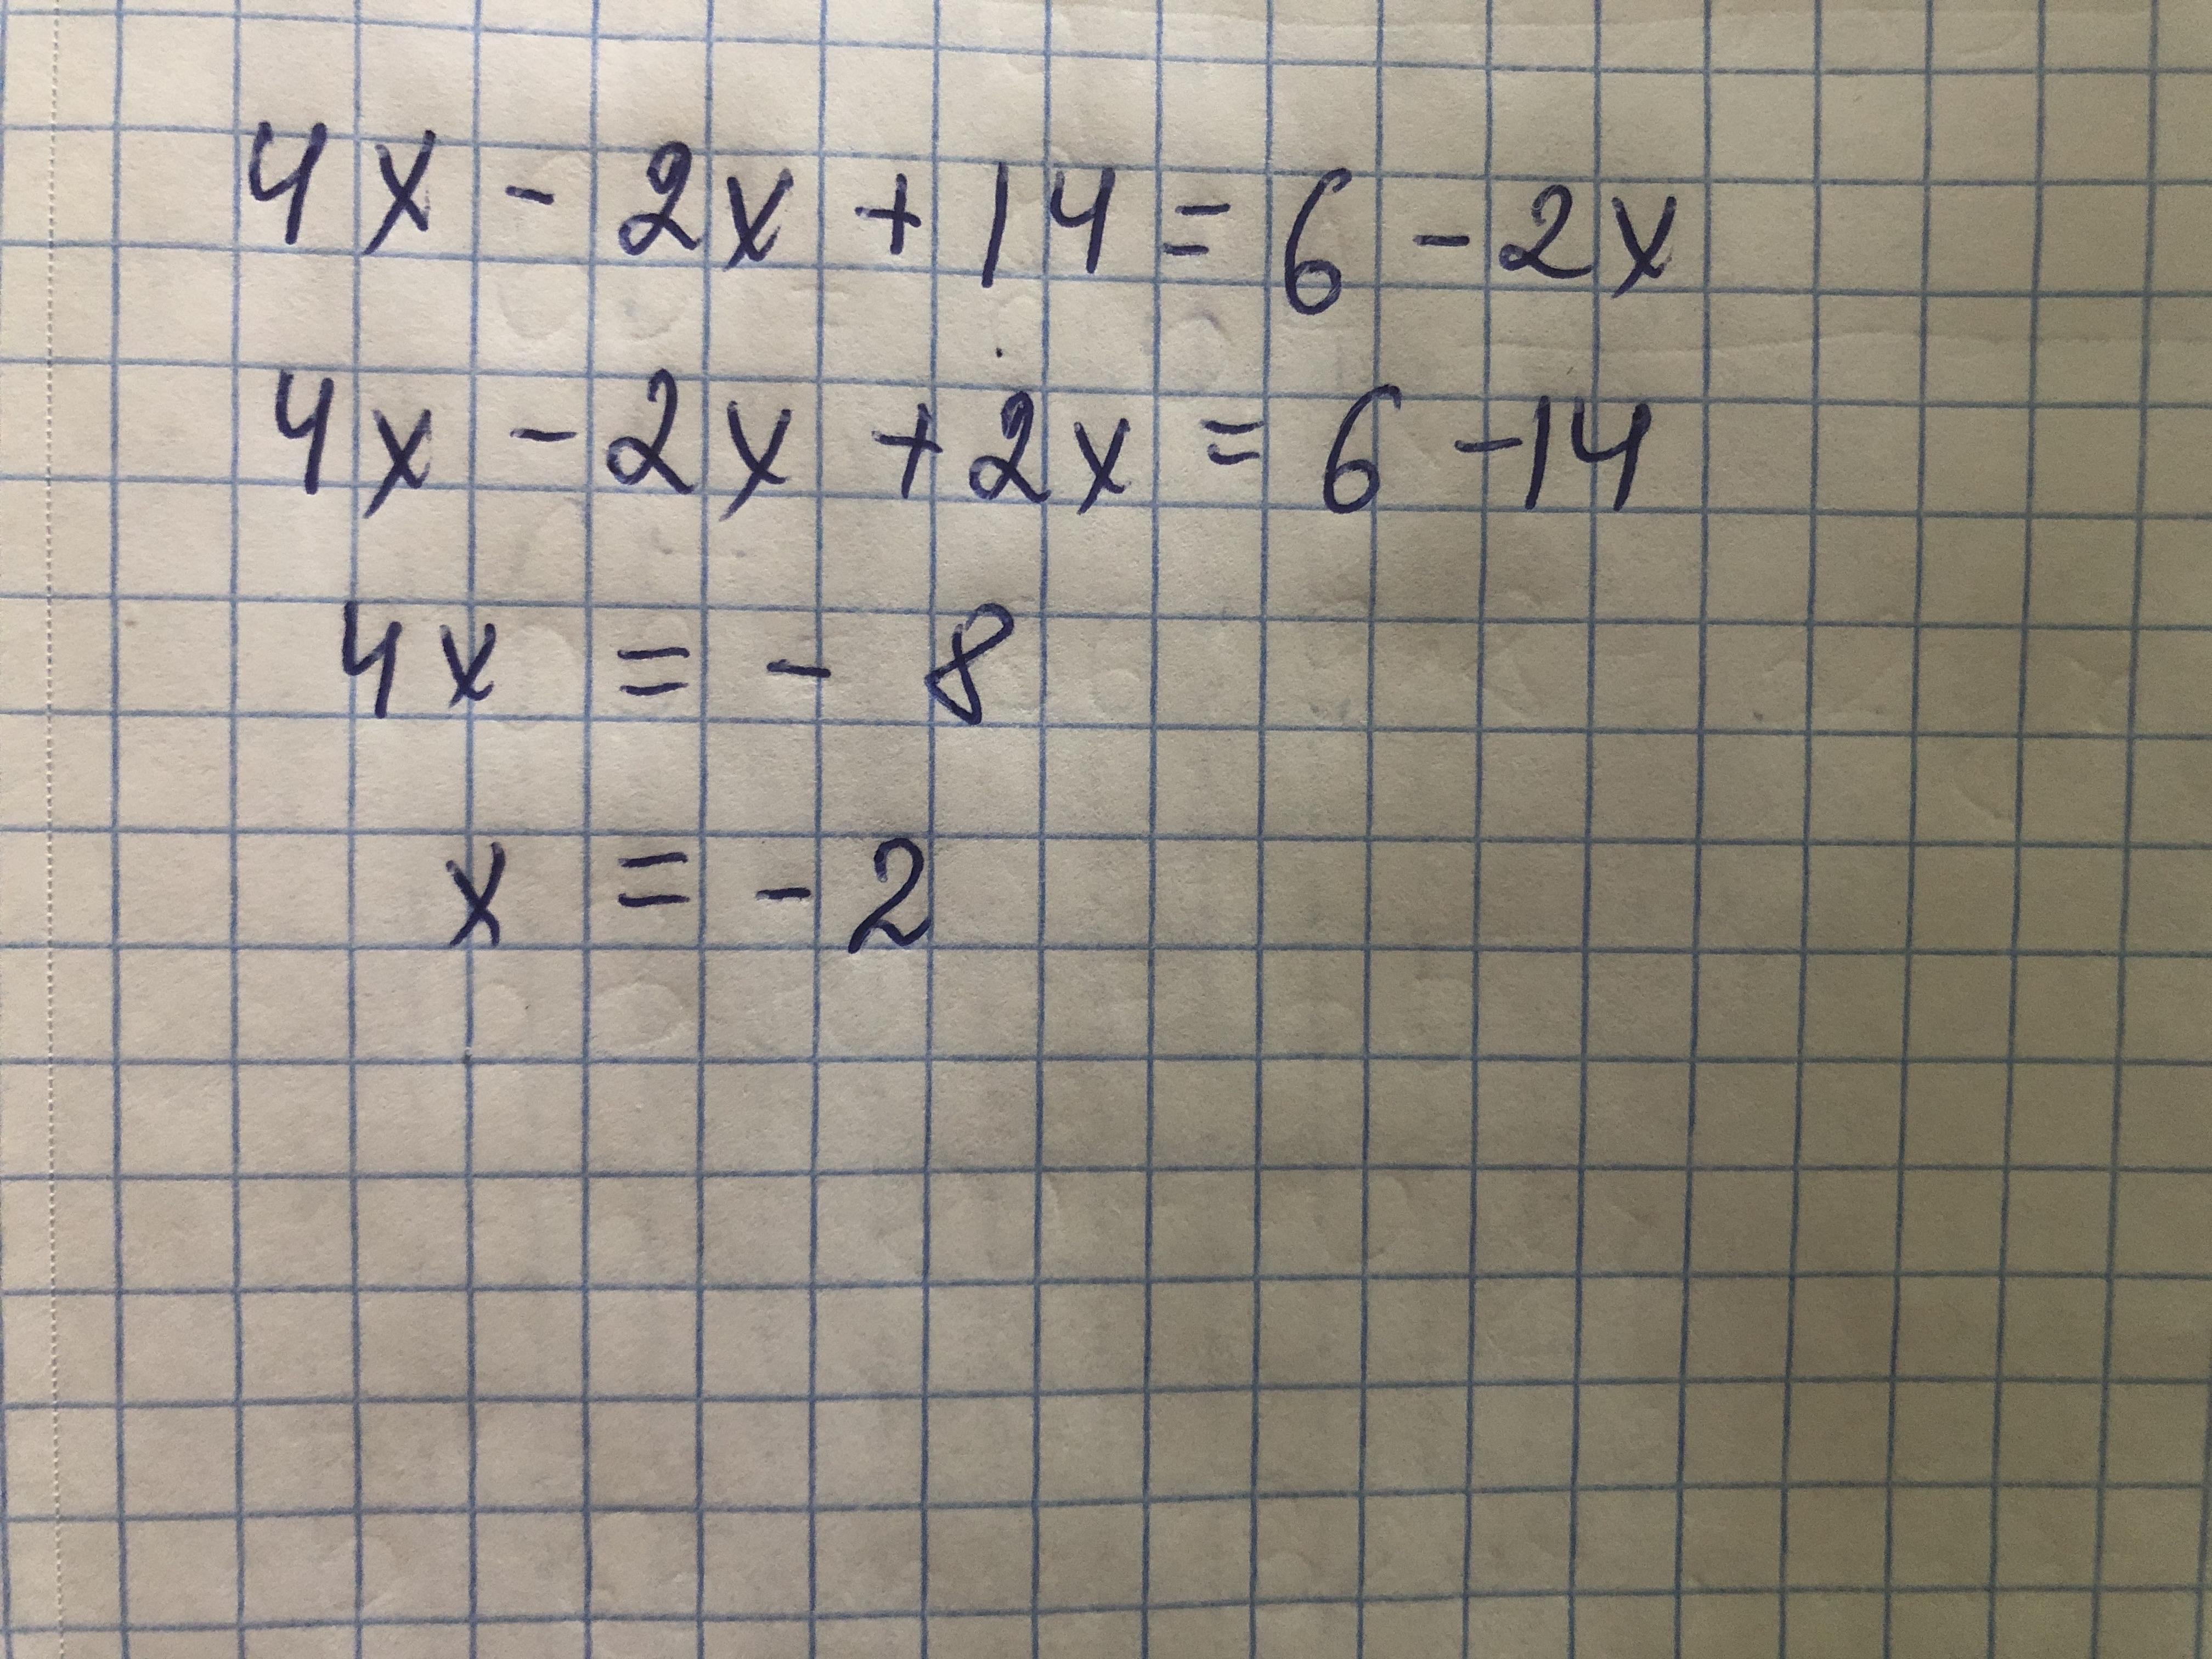 4x - 2x + 14 = 6 - 2x
4x - 2x + 2x = 6 - 14
4x = - 8
x = - 2